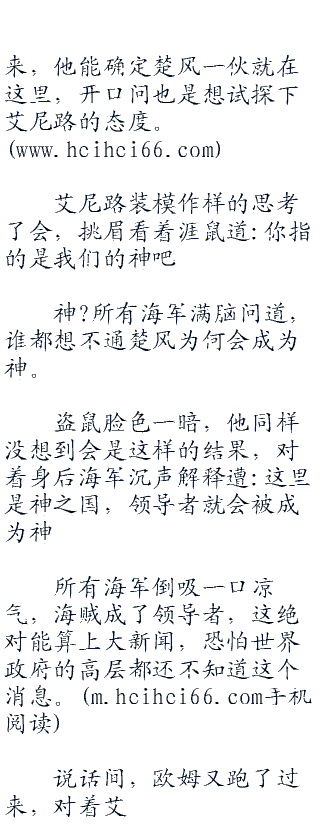 来，他能确定楚风一伙就在
这里，开口问也是想试探下
艾尼路的态度。
(www.hcihci66.com)
艾尼路装模作样的思考
了会，挑眉看着涯鼠道:你指
的是我们的神吧
神?所有海军满脑问道，
谁都想不通楚风为何会成为
神。
盗鼠脸色一暗，他同样
没想到会是这样的结果，对
着身后海军沉声解释遭:这里
是神之国，领导者就会被成
为神
所有海军倒吸一口凉
气，海贼成了领导者，这绝
对能算上大新闻，恐怕世界
政府的高层都还不知道这个
消息。(m.hcihci66.com手机
阅读)
说话间，欧姆又跑了过
来，对着艾